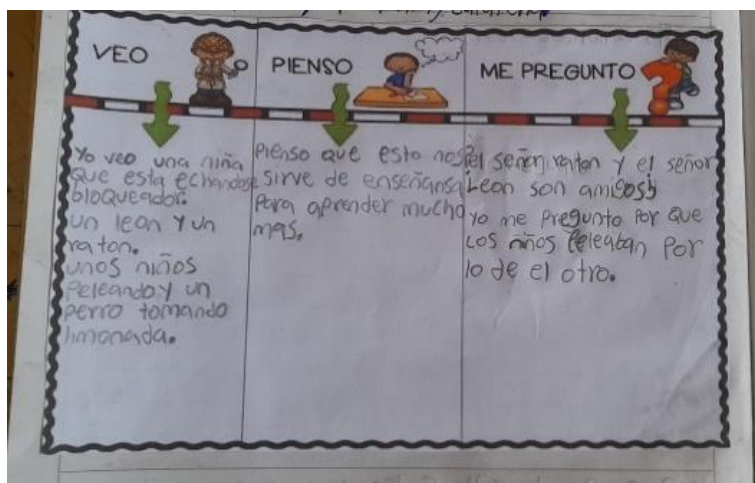 VEO
Yo veo una niña
que esta echandose
bloqueador.
un leon y un
raton.
unos niños
peleando y un
perro tomando
limonada.
PIENSO
Pienso que esto nos
sirve de enseñansa
para aprender mucho
mas.
ME PREGUNTO
el señor raton y el señor
Leon son amigos
yo me pregunto por que
Los niños peleaban por
lo de el otro.